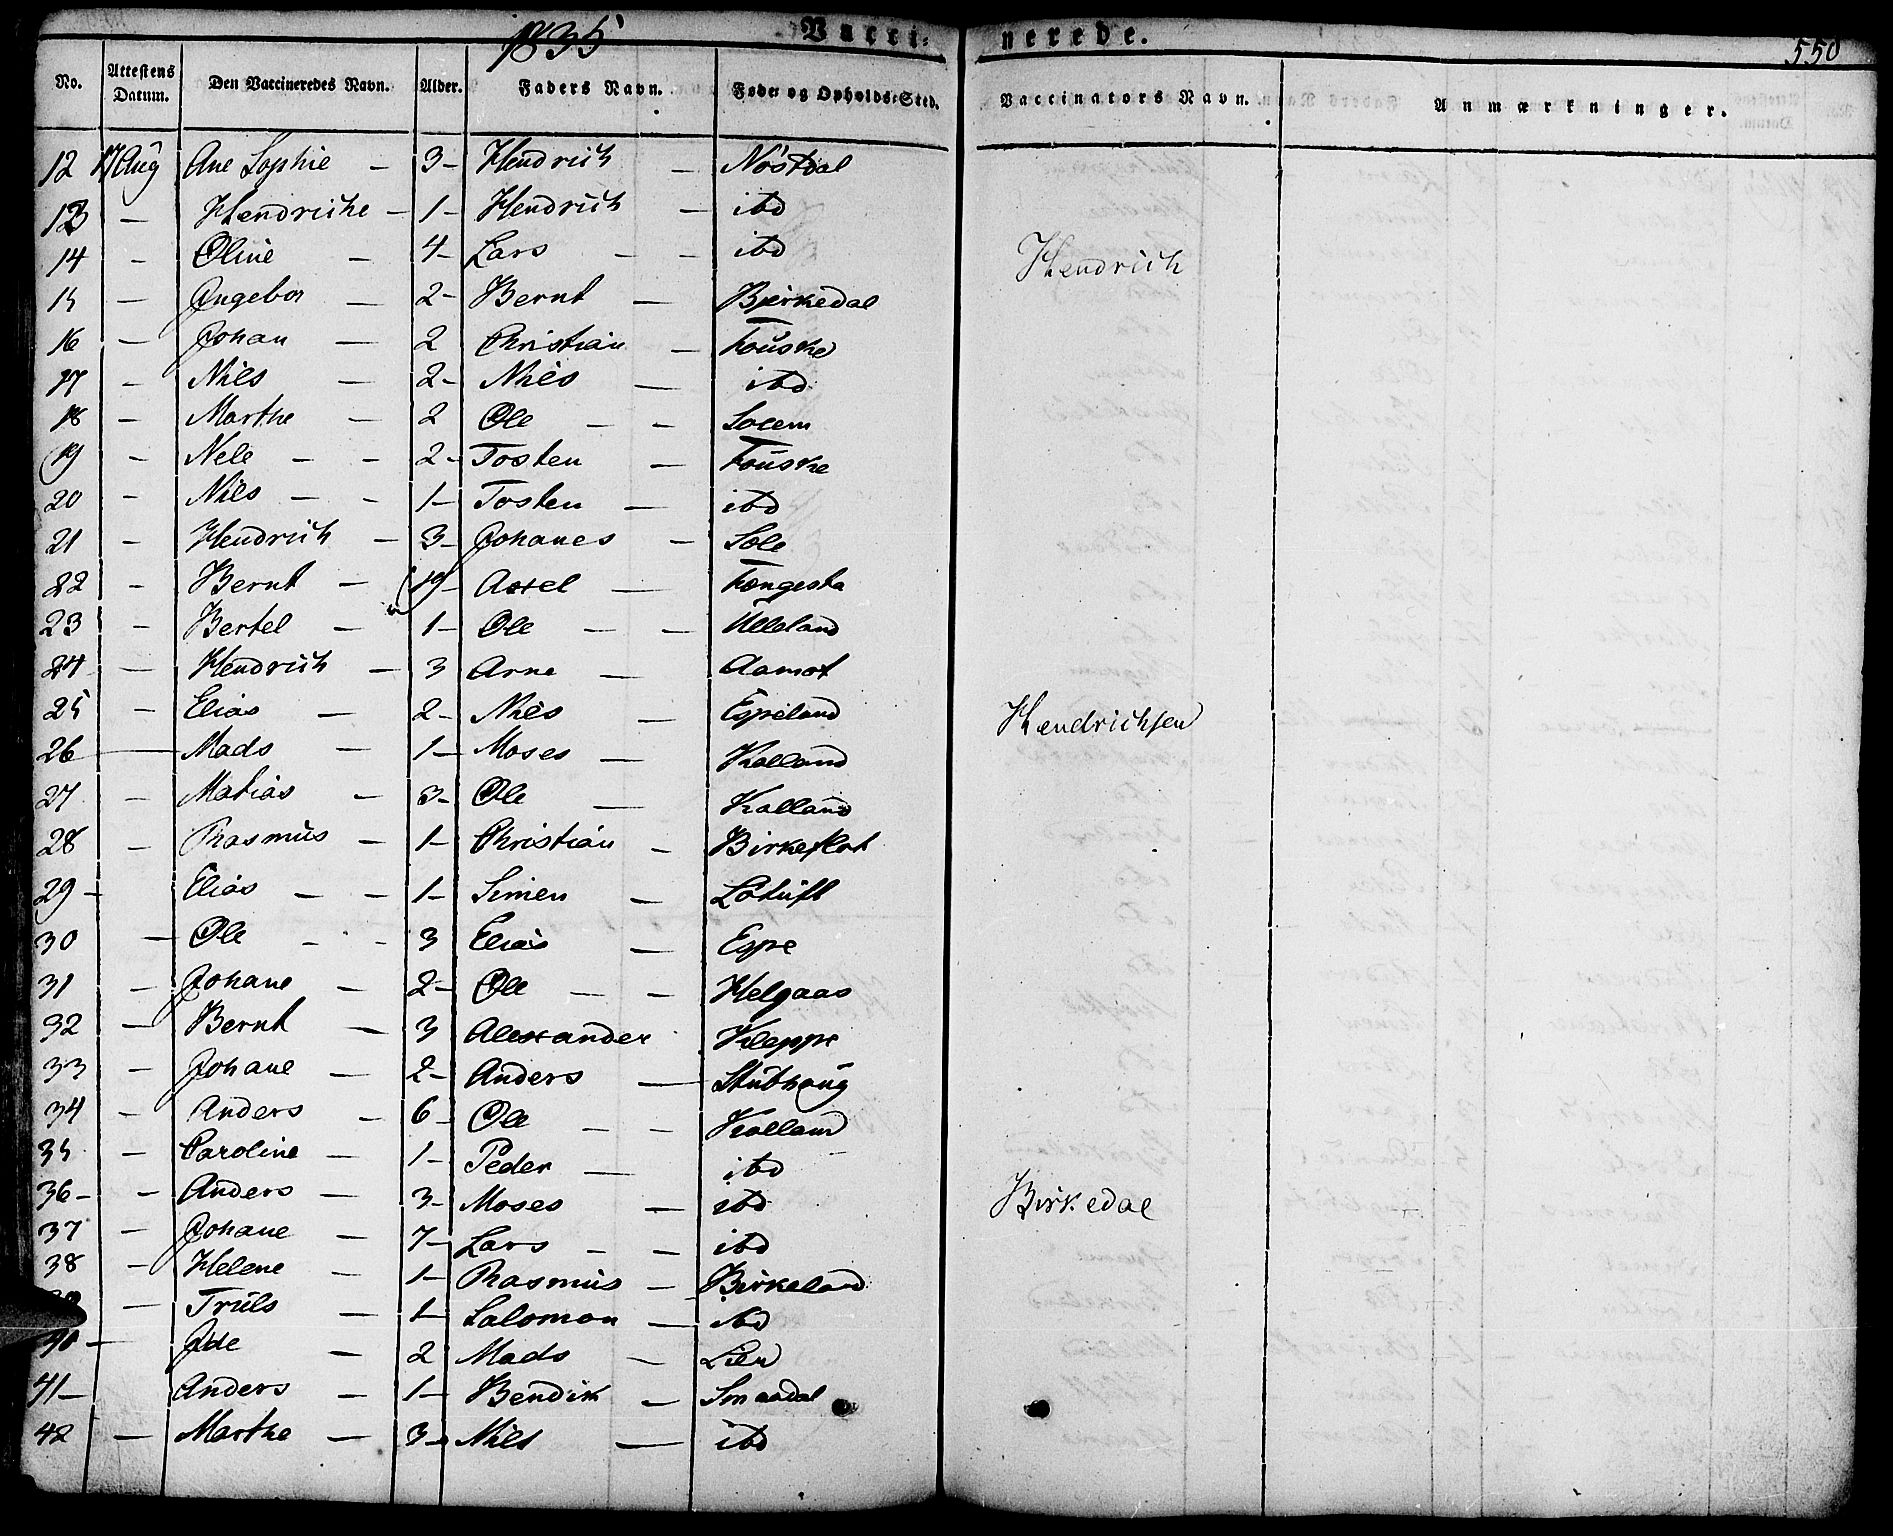 1835 Vacci- nerede. 550
No. Attestens Datum. Den Vaccineredes Navn. Alder. Faders Navn. Føde- og Opholds-Sted. Vaccinators Navn. Anmærkninger.
12 17 Aug Ane Sophie - 3 - Hendrich - Nøstdal
13 - Hendriche - 1 - Hendrich - ibd
14 - Oline - 4 - Lars - - ibd Hendrich
15 - Ingebor - 2 - Bernt - Bjerkedal
16 - Johan - 2 Christian - Fouske
17 - Niels - 2 - Niels - ibd
18 - Marthe - 2 Ole - - Solem
19 - Nele - - 2 - Tosten - Fouske
20 - Niels - - 1 - Tosten - ibd
21 - Hendrich - 3 - Johanes - Sole
22 - Bernt - 19 - Axel -
23 - Bertel - 1 - Ole - - Ulleland
24 - Hendrich - 3 Arne - Aamot
25 - Elias - 2 - Niels - Espeland Hendrichsen
26 - Mads - 1 - Moses - Kalland
27 - Matias - 3 - Ole - Kalland
28 - Rasmus - 1 - Christian - Birkeflot
29 - Elias - - 1 - Simen - Lotuft
30 - Ole - - 3 Elias - Espe
31 - Johane - 2 - Ole - - Helgaas
32 - Bernt - 3 Alexander Kleppe
33 - Johane - 2 - Anders - Stubhaug
34 - Anders - 6 - Ole - - Kalland
35 - Caroline - 1 - Peder - ibd
36 - - Anders - 3 - Moses - ibd Birkedal
37 - Johane - 7 - Lars - - ibd
38 - Helene - 1 - Rasmus - Birkeland
39 - Truls - 1 - Salomon - ibd
40 - Ide - 2 Mads - Lien
41 - Anders - 1 - Bendik - Smaadal
42 - Marthe - 3 - Niels - ibd